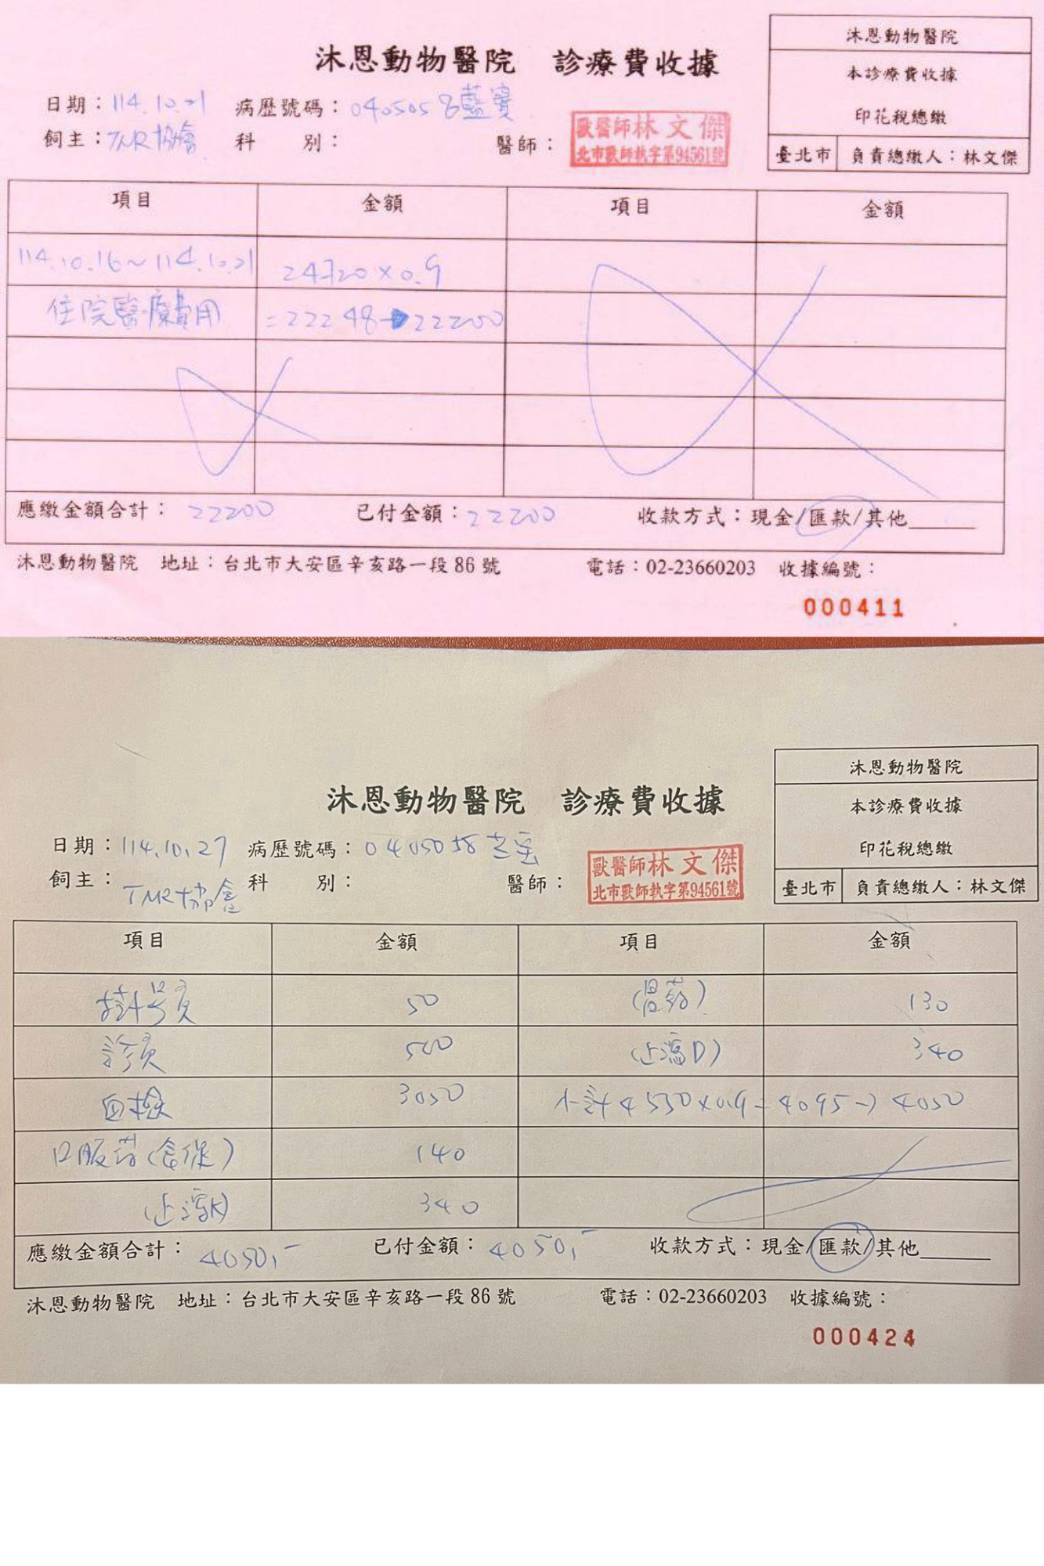 沐恩動物醫院 診療費收據
沐恩動物醫院
本診療費收據
印花稅總繳
臺北市 負責總繳人：林文傑
日期：114.10.21 病歷號碼：040505 藍寶
飼主：TNR協會 科 別： 醫師：
獸醫師林文傑
北市獸師執字第94561號
項目 金額 項目 金額
114.10.16～114.10.21 24720×0.9
住院醫療費用 =22248→22200
應繳金額合計：22200 已付金額：22200 收款方式：現金/匯款/其他______
沐恩動物醫院 地址：台北市大安區辛亥路一段86號 電話：02-23660203 收據編號：
000411
沐恩動物醫院 診療費收據
沐恩動物醫院
本診療費收據
印花稅總繳
臺北市 負責總繳人：林文傑
日期：114.10.27 病歷號碼：040505
飼主：TNR協會 科 別： 醫師：
獸醫師林文傑
北市獸師執字第94561號
項目 金額 項目 金額
掛号費 50 130
診費 500 (止瀉D) 340
血檢 3050 小計4550×0.9=4095→4050
口服葯(食保) 140
(止瀉K) 340
應繳金額合計：4050,- 已付金額：4050,- 收款方式：現金/匯款/其他______
沐恩動物醫院 地址：台北市大安區辛亥路一段86號 電話：02-23660203 收據編號：
000424